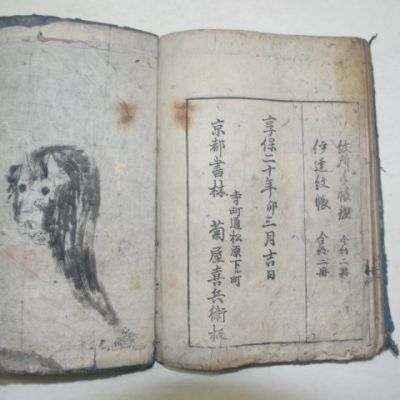 紋所
伊達紋帳 全部二冊
享保二十年卯三月吉日
寺町通松原下ル町
京都書林 菊屋喜兵衛板